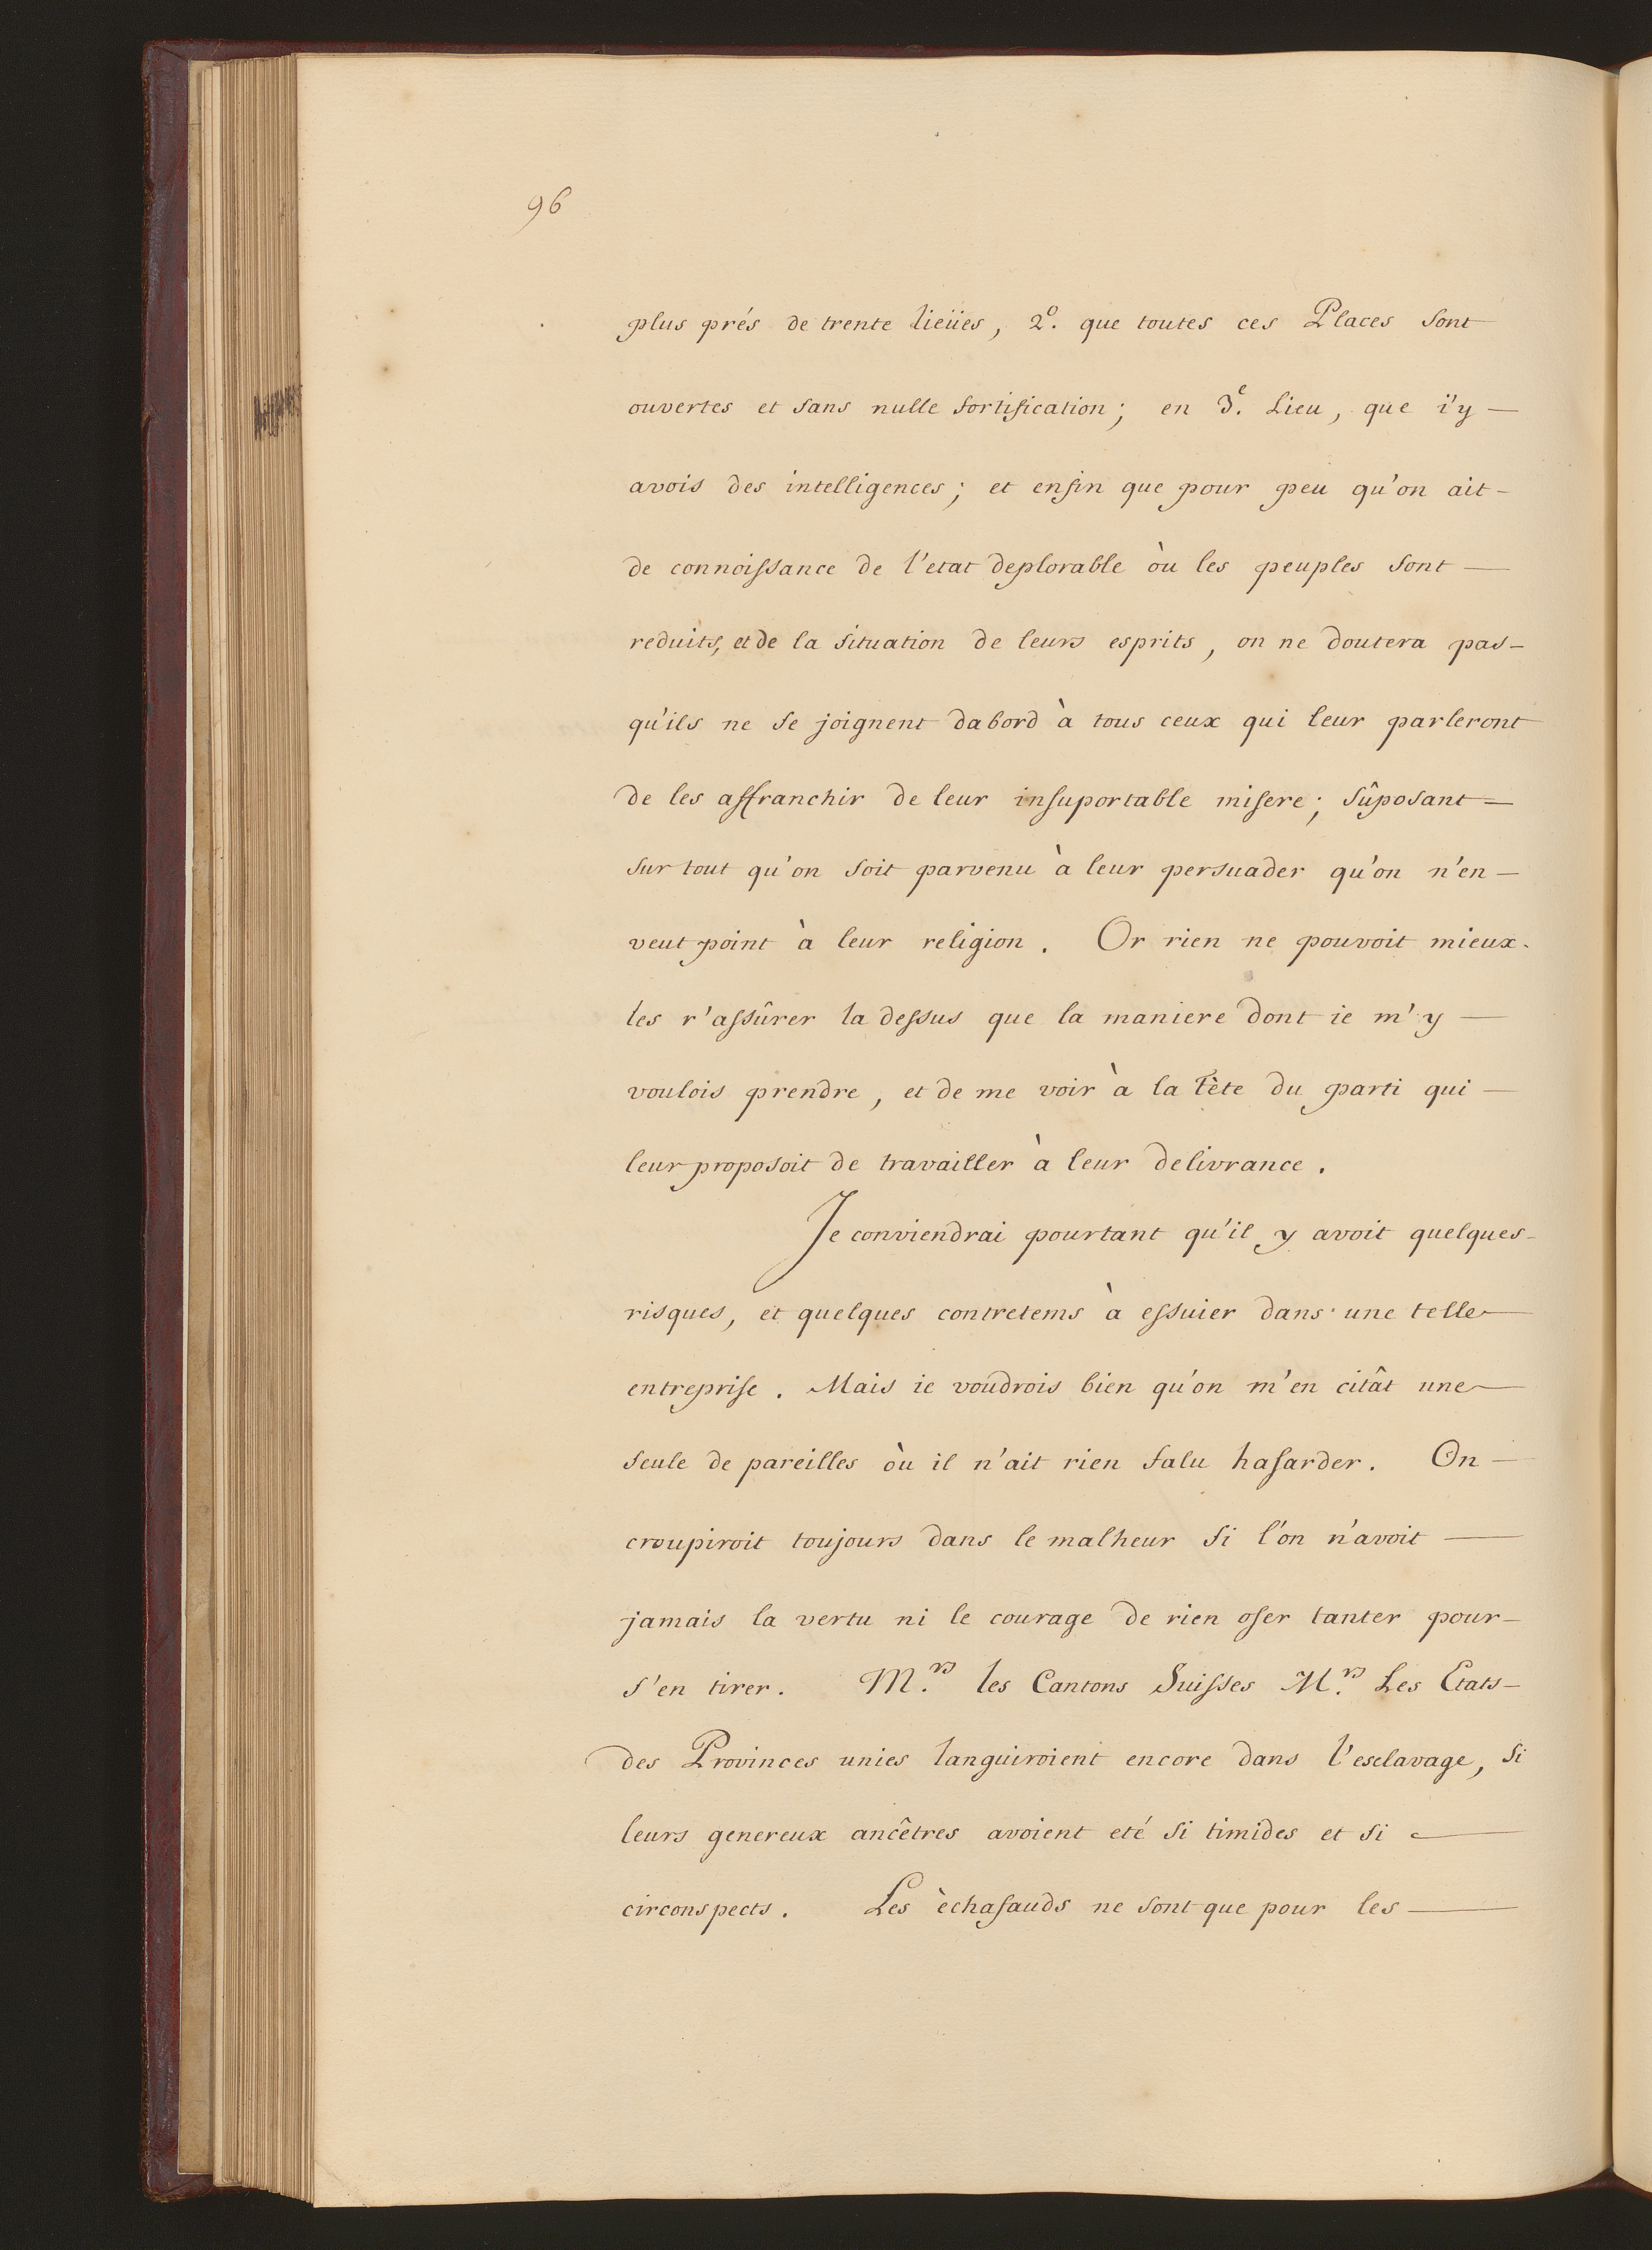 96
plus prés de trente lieües, 2º. que toutes ces Places sont
ouvertes et sans nulle fortification; en 3e. Lieu, que i'y
avois des intelligences; et enfin que pour peu qu'on ait
de connoissance de l'etat deplorable où les peuples sont
reduits, et de la situation de leurs esprits, on ne doutera pas
qu'ils ne se joignent dabord à tous ceux qui leur parleront
de les affranchir de leur insuportable misere; sûposant
sur tout qu'on soit parvenu à leur persuader qu'on n'en
veut point à leur religion. Or rien ne pouvoit mieux
les r'assûrer la dessus que la maniere dont ie m'y
voulois prendre, et de me voir à la tète du parti qui
leur proposoit de travailler à leur delivrance.
Je conviendrai pourtant qu'il y avoit quelques
risques, et quelques contretems à essuier dans une telle
entreprise. Mais ie voudrois bien qu'on m'en citât une
seule de pareilles où il n'ait rien falu hasarder. On
croupiroit toujours dans le malheur si l'on n'avoit
jamais la vertu ni le courage de rien oser tanter pour
s'en tirer. M.rs les Cantons Suisses M.rs Les Etats
des Provinces unies languiroient encore dans l'esclavage, si
leurs genereux ancêtres avoient eté si timides et si
circonspects. Les èchafauds ne sont que pour les